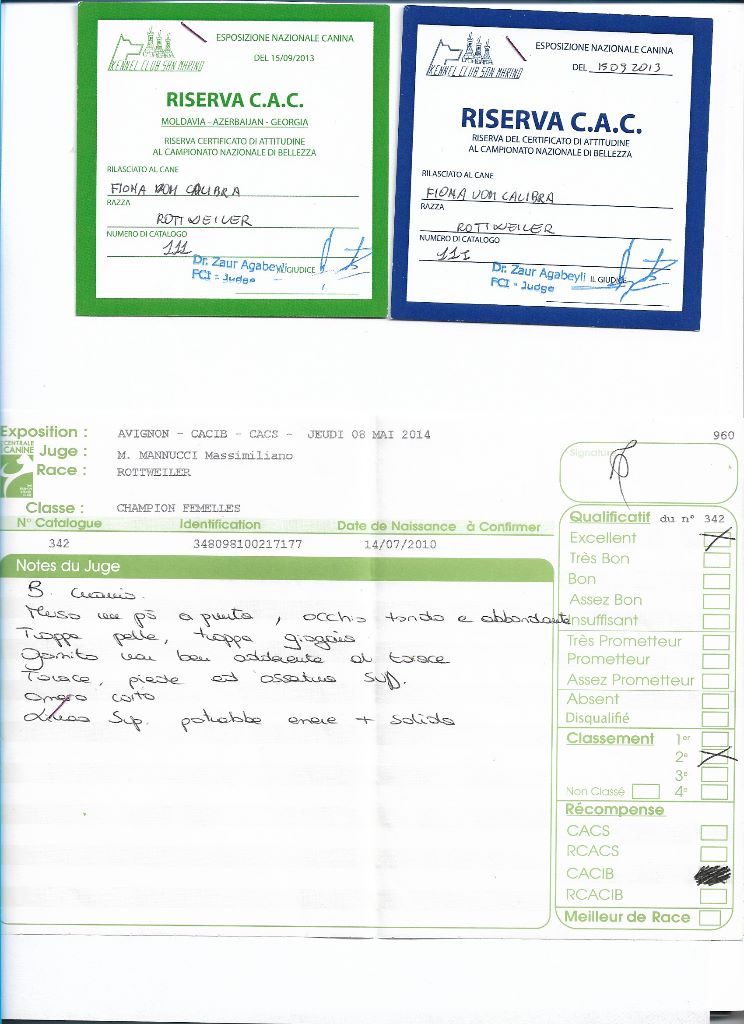 ESPOSIZIONE NAZIONALE CANINA
KENNEL CLUB SAN MARINO
DEL 15/09/2013
RISERVA C.A.C.
MOLDAVIA - AZERBAIJAN - GEORGIA
RISERVA CERTIFICATO DI ATTITUDINE
AL CAMPIONATO NAZIONALE DI BELLEZZA
RILASCIATO AL CANE
FIONA VOM CALIBRA
RAZZA
ROTTWEILER
NUMERO DI CATALOGO
111
Dr. Zaur Agabeyli IL GIUDICE
FCI - Judge
ESPOSIZIONE NAZIONALE CANINA
KENNEL CLUB SAN MARINO
DEL 15 09 2013
RISERVA C.A.C.
RISERVA DEL CERTIFICATO DI ATTITUDINE
AL CAMPIONATO NAZIONALE DI BELLEZZA
RILASCIATO AL CANE
FIONA VOM CALIBRA
RAZZA
ROTTWEILER
NUMERO DI CATALOGO
111
Dr. Zaur Agabeyli IL GIUDICE
FCI - Judge
Exposition : AVIGNON - CACIB - CACS - JEUDI 08 MAI 2014 960
CENTRALE CANINE
Juge : M. MANNUCCI Massimiliano
Race : ROTTWEILER
Signature
Classe : CHAMPION FEMELLES
N° Catalogue Identification Date de Naissance à Confirmer
342 348098100217177 14/07/2010
Notes du Juge
B. cranio.
Muso un pò a punta, occhio tondo e abbondante
Troppa pelle, troppa giogaia
Gomito non ben aderente al torace
Torace, piede ed ossatura suff.
omero corto
Linea sup. potrebbe essere + solida
Qualificatif du n° 342
Excellent
Très Bon
Bon
Assez Bon
Insuffisant
Très Prometteur
Prometteur
Assez Prometteur
Absent
Disqualifié
Classement 1er
2e
3e
Non Classé 4e
Récompense
CACS
RCACS
CACIB
RCACIB
Meilleur de Race